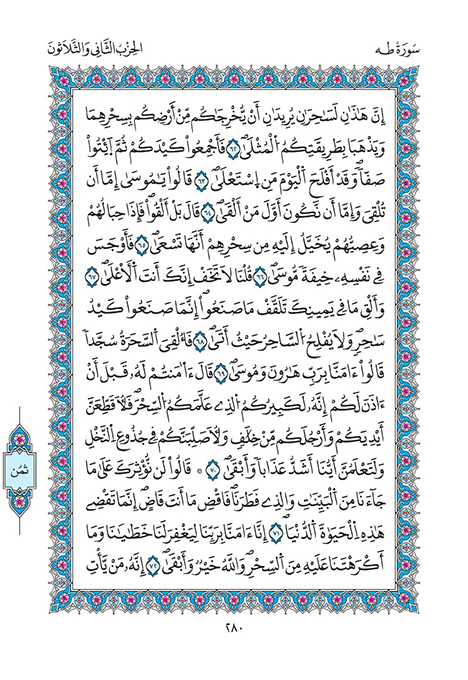 سُورَةُ طَهَ
الحِزْبُ الثَّانِي وَالثَّلَاثُونَ
إِنَّ هَٰذَٰنِ لَسَٰحِرَٰنِ يُرِيدَٰنِ أَنْ يُّخْرِجَٰكُم مِّنْ أَرْضِكُم بِسِحْرِهِمَا
وَيَذْهَبَا بِطَرِيقَتِكُمُ الْمُثْلَىٰ ٦٢ فَأَجْمِعُوا كَيْدَكُمْ ثُمَّ اَئْتُوا
صَفّاً وَقَدْ أَفْلَحَ الْيَوْمَ مَنِ اِسْتَعْلَىٰ ٦٣ قَالُوا يَٰمُوسَىٰ إِمَّا أَن
تُلْقِيَ وَإِمَّا أَن نَّكُونَ أَوَّلَ مَنْ أَلْقَىٰ ٦٤ قَالَ بَلْ أَلْقُوا فَإِذَا حِبَالُهُمْ
وَعِصِيُّهُمْ يُخَيَّلُ إِلَيْهِ مِن سِحْرِهِمُ أَنَّهَا تَسْعَىٰ ٦٥ فَأَوْجَسَ
فِي نَفْسِهِۦ خِيفَةً مُّوسَىٰ ٦٦ قُلْنَا لَا تَخَفِ اِنَّكَ أَنتَ اَلْأَعْلَىٰ ٦٧
وَأَلْقِ مَا فِي يَمِينِكَ تَلَقَّفْ مَا صَنَعُوا إِنَّمَا صَنَعُوا كَيْدُ
سَٰحِرٍ وَلَا يُفْلِحُ السَّاحِرُ حَيْثُ أَتَىٰ ٦٨ فَأُلْقِيَ السَّحَرَةُ سُجَّداً
قَالُوا ءَامَنَّا بِرَبِّ هَٰرُونَ وَمُوسَىٰ ٦٩ قَالَ ءَا۬مَنتُمْ لَهُۥ قَبْلَ أَنْ
ءَاذَنَ لَكُمُ إِنَّهُۥ لَكَبِيرُكُمُ الَّذِي عَلَّمَكُمُ السِّحْرَ فَلَأُقَطِّعَنَّ
أَيْدِيَكُمْ وَأَرْجُلَكُم مِّنْ خِلَٰفٍ وَلَأُصَلِّبَنَّكُمْ فِي جُذُوعِ النَّخْلِ
وَلَتَعْلَمُنَّ أَيُّنَا أَشَدُّ عَذَاباً وَأَبْقَىٰ ٧٠ ۞ قَالُوا لَن نُّؤْثِرَكَ عَلَىٰ مَا
جَآءَنَا مِنَ الْبَيِّنَٰتِ وَالَّذِي فَطَرَنَا فَاقْضِ مَا أَنتَ قَاضٍ إِنَّمَا تَقْضِي
هَٰذِهِ الْحَيَوٰةَ الدُّنْيَا ٧١ إِنَّا ءَامَنَّا بِرَبِّنَا لِيَغْفِرَ لَنَا خَطَٰيَٰنَا وَمَا
أَكْرَهْتَنَا عَلَيْهِ مِنَ السِّحْرِ وَاللَّهُ خَيْرٌ وَأَبْقَىٰ ٧٢ إِنَّهُۥ مَنْ يَّأْتِ
ثُمُن
٢٨٠